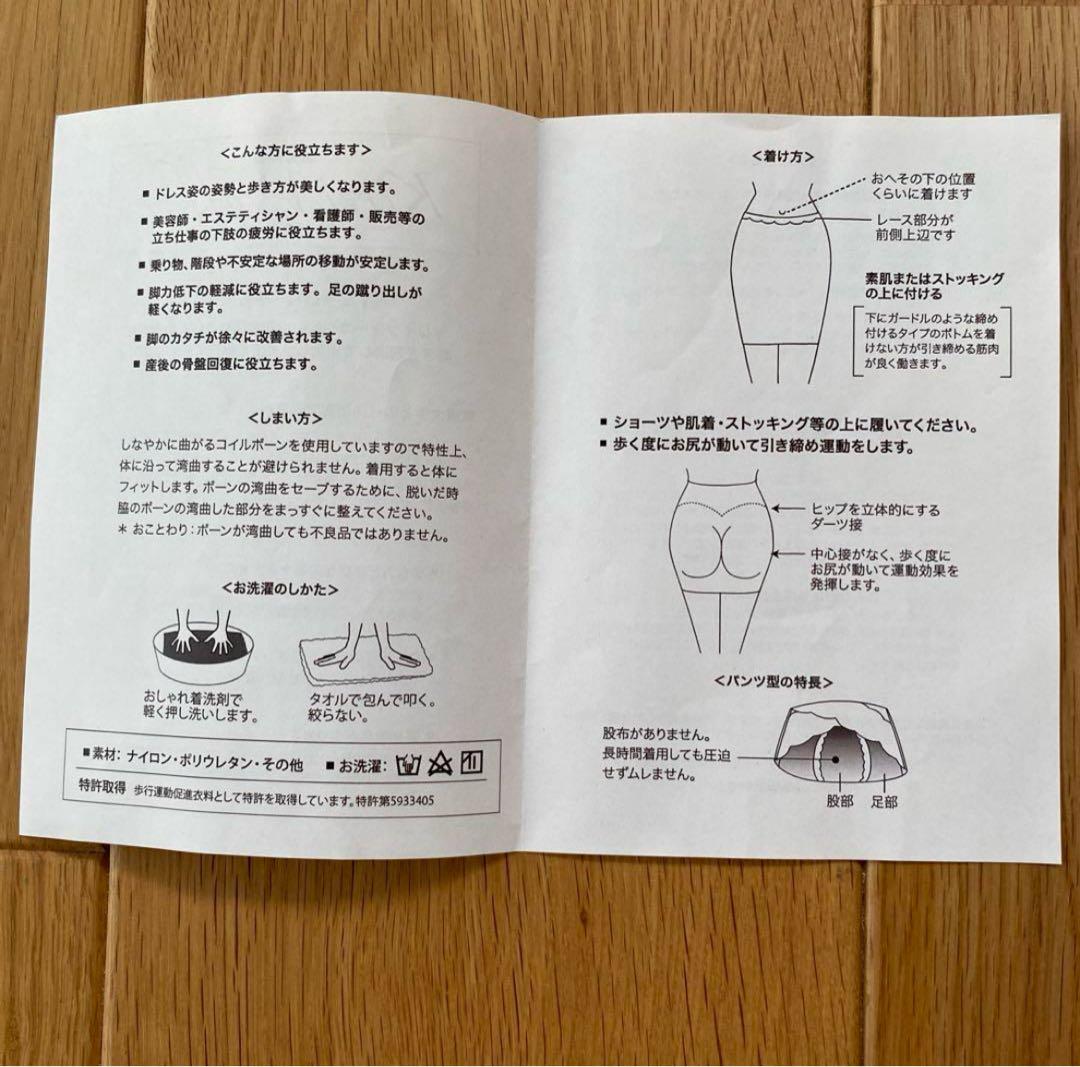 <こんな方に役立ちます>
■ ドレス姿の姿勢と歩き方が美しくなります。
■ 美容師・エステティシャン・看護師・販売等の
立ち仕事の下肢の疲労に役立ちます。
■ 乗り物、階段や不安定な場所の移動が安定します。
■ 脚力低下の軽減に役立ちます。足の蹴り出しが
軽くなります。
■ 脚のカタチが徐々に改善されます。
■ 産後の骨盤回復に役立ちます。
<しまい方>
しなやかに曲がるコイルボーンを使用していますので特性上、
体に沿って湾曲することが避けられません。着用すると体に
フィットします。ボーンの湾曲をセーブするために、脱いだ時
脇のボーンの湾曲した部分をまっすぐに整えてください。
＊ おことわり：ボーンが湾曲しても不良品ではありません。
<お洗濯のしかた>
おしゃれ着洗剤で
軽く押し洗いします。
タオルで包んで叩く。
絞らない。
■素材：ナイロン・ポリウレタン・その他 ■お洗濯：
特許取得 歩行運動促進衣料として特許を取得しています。特許第5933405
<着け方>
おへその下の位置
くらいに着けます
レース部分が
前側上辺です
素肌またはストッキング
の上に付ける
下にガードルのような締め
付けるタイプのボトムを着
けない方が引き締める筋肉
が良く働きます。
■ ショーツや肌着・ストッキング等の上に履いてください。
■ 歩く度にお尻が動いて引き締め運動をします。
ヒップを立体的にする
ダーツ接
中心接がなく、歩く度に
お尻が動いて運動効果を
発揮します。
<パンツ型の特長>
股布がありません。
長時間着用しても圧迫
せずムレません。
股部 足部